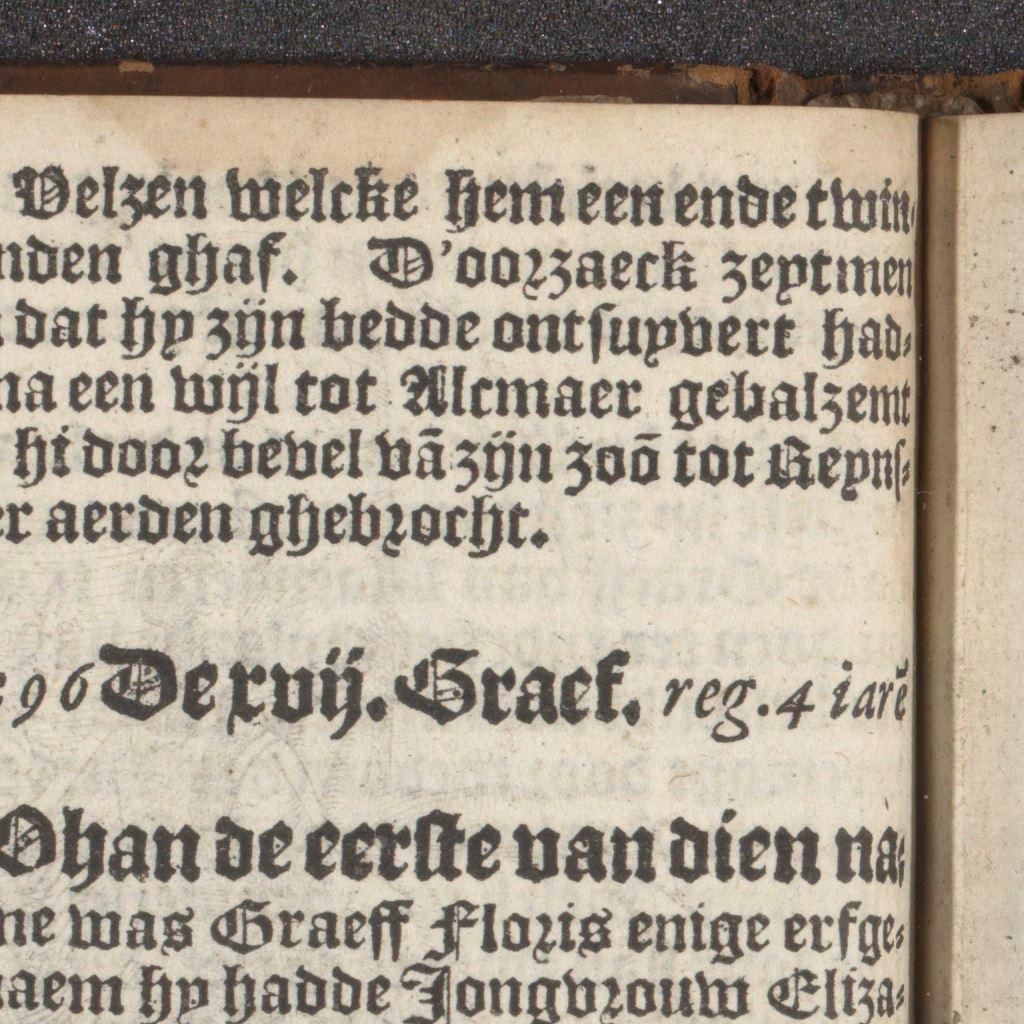 Velzen welcke hem een ende twin-
nden ghaf. D'oorzaeck zeytmen
dat hy zijn bedde ontsuyvert had-
na een wijl tot Alcmaer gebalzemt
hi door bevel vā zijn zoō tot Reyns-
er aerden ghebrocht.
96 De xvij. Graef. reg. 4 iarē
Ohan de eerste van dien na-
me was Graeff Floris enige erfge-
naem hy hadde Jongvrouw Eliza-